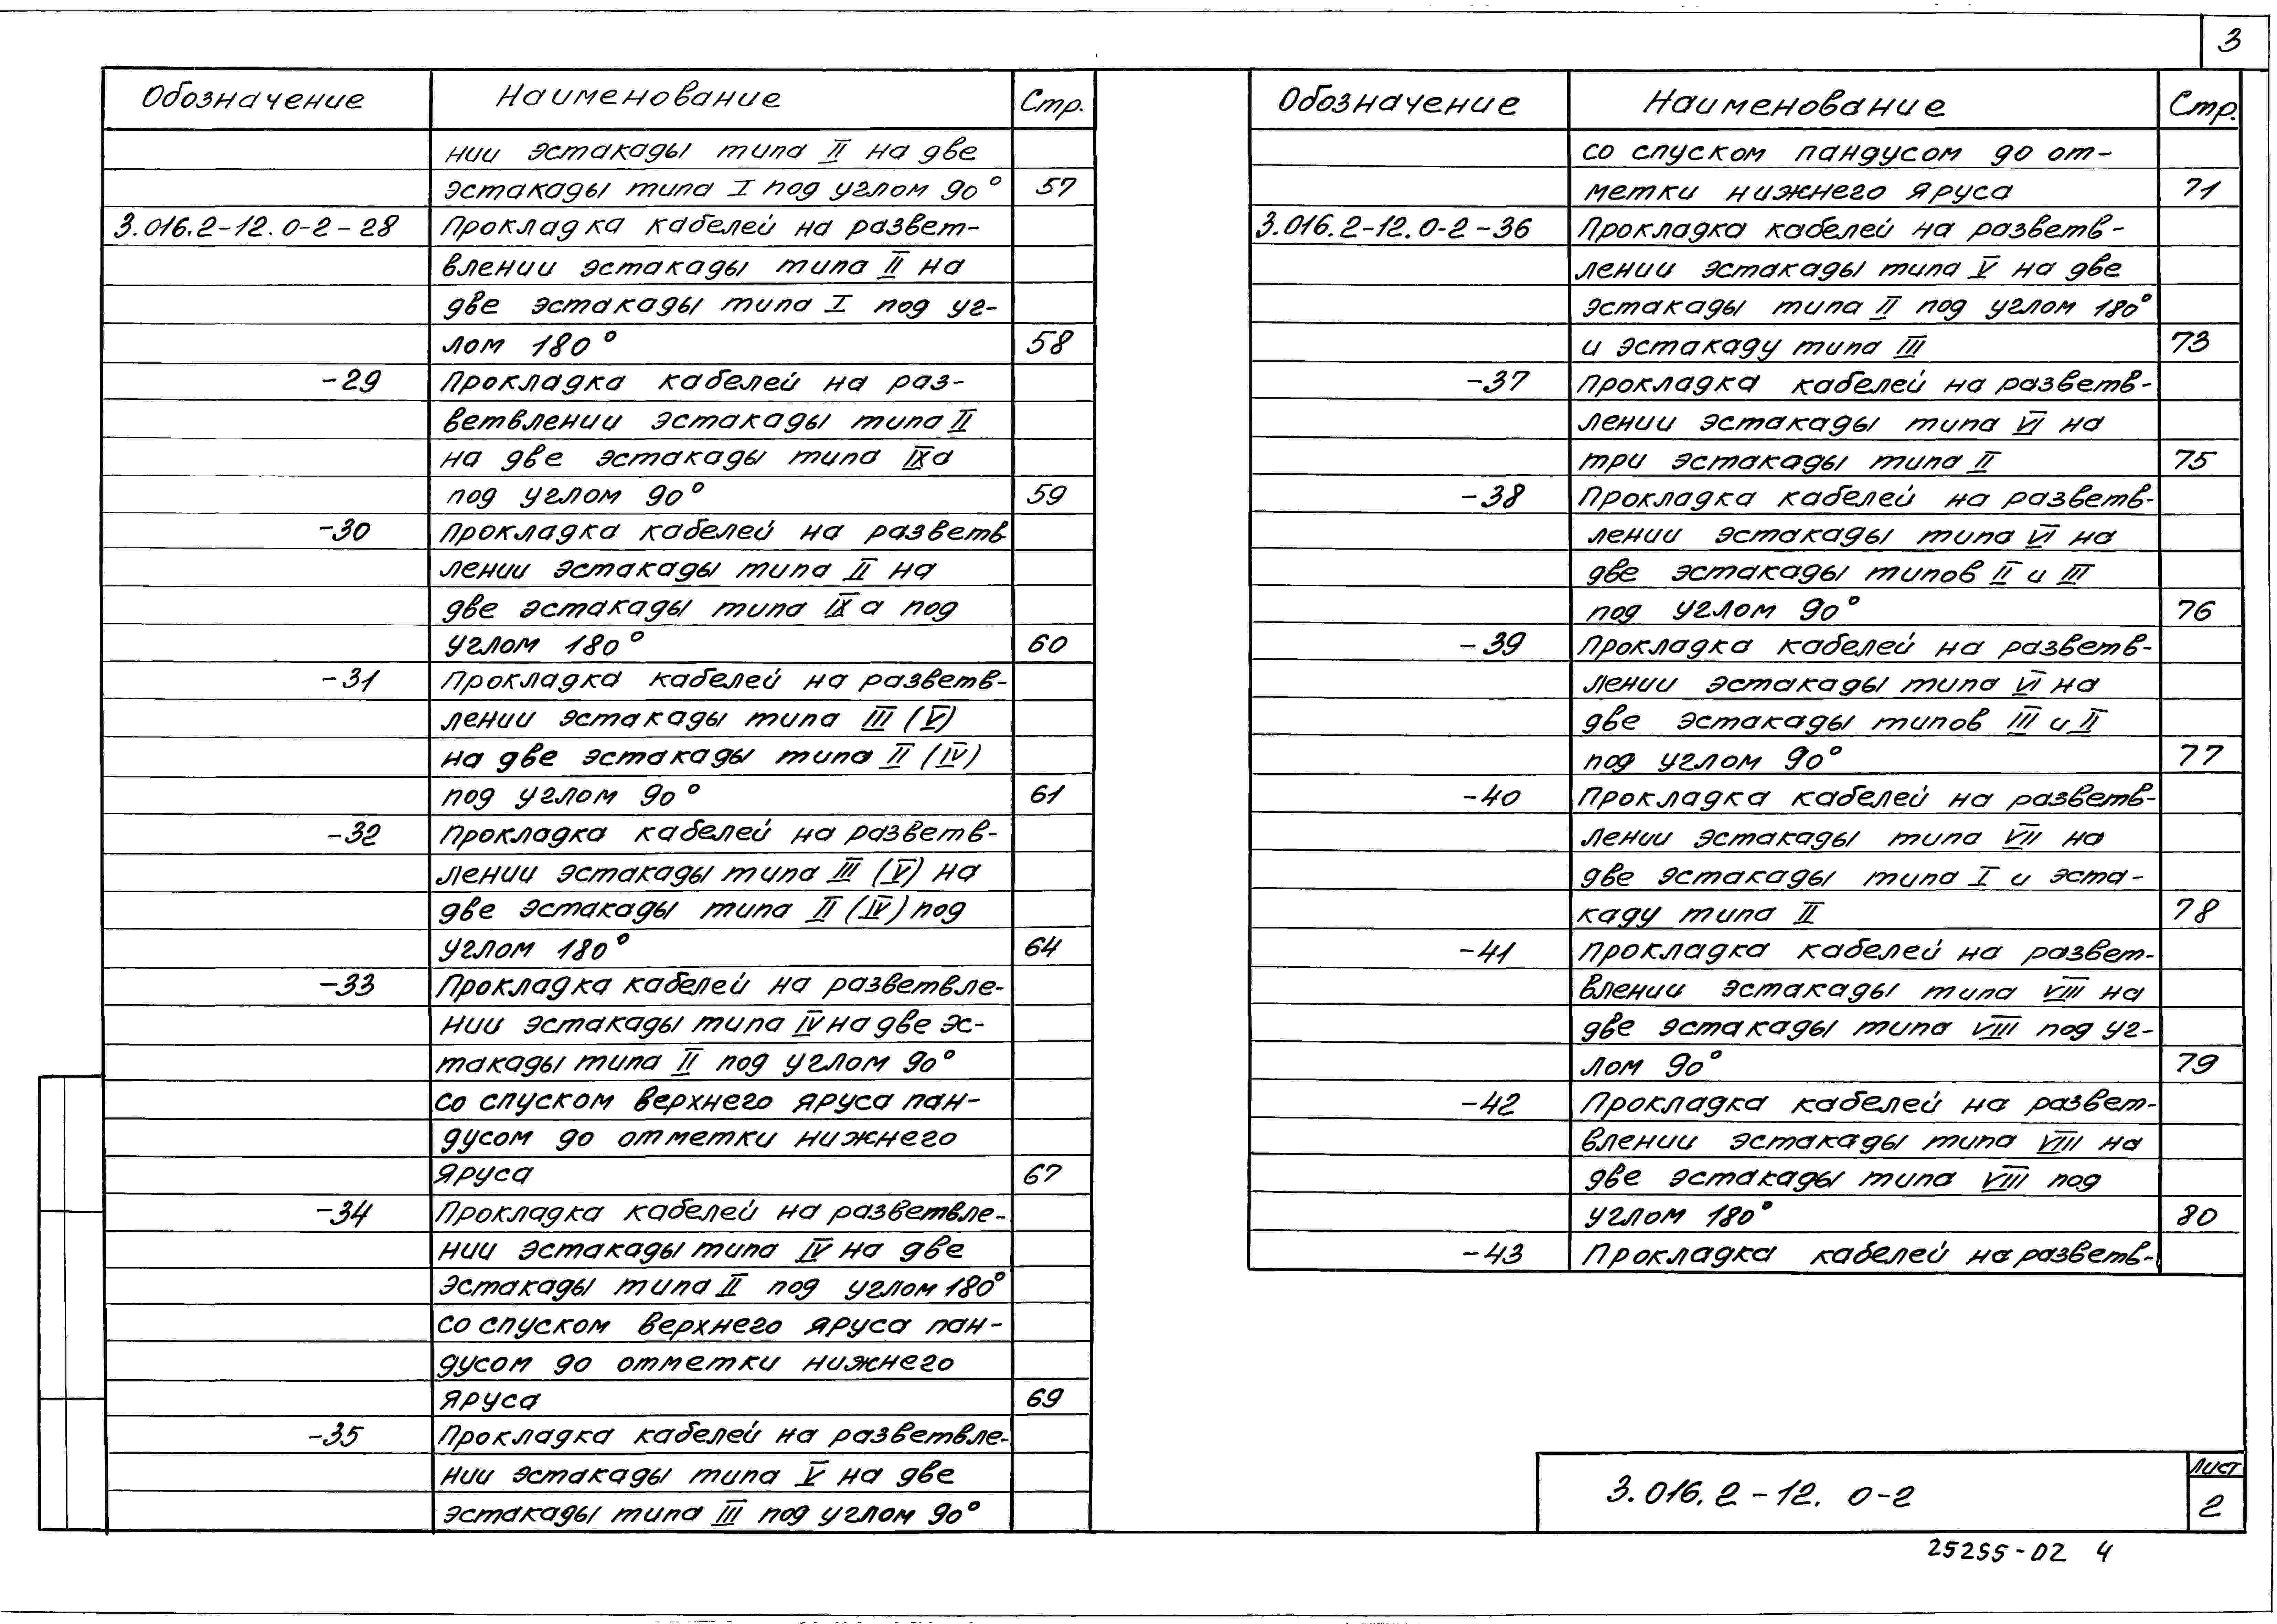 3
Обозначение Наименование Стр.
нии эстакады типа II на две
эстакады типа I под углом 90° 57
3.016.2-12.0-2-28 Прокладка кабелей на развет-
влении эстакады типа II на
две эстакады типа I под уг-
лом 180° 58
-29 Прокладка кабелей на раз-
ветвлении эстакады типа II
на две эстакады типа IXа
под углом 90° 59
-30 Прокладка кабелей на разветв
лении эстакады типа II на
две эстакады типа IXа под
углом 180° 60
-31 Прокладка кабелей на разветв-
лении эстакады типа III (V)
на две эстакады типа II (IV)
под углом 90° 61
-32 Прокладка кабелей на разветв-
лении эстакады типа III (V) на
две эстакады типа II (IV) под
углом 180° 64
-33 Прокладка кабелей на разветвле-
нии эстакады типа IV на две эс-
такады типа II под углом 90°
со спуском верхнего яруса пан-
дусом до отметки нижнего
яруса 67
-34 Прокладка кабелей на разветвле-
нии эстакады типа IV на две
эстакады типа II под углом 180°
со спуском верхнего яруса пан-
дусом до отметки нижнего
яруса 69
-35 Прокладка кабелей на разветвле-
нии эстакады типа V на две
эстакады типа III под углом 90°
Обозначение Наименование Стр.
со спуском пандусом до от-
метки нижнего яруса 71
3.016.2-12.0-2-36 Прокладка кабелей на разветв-
лении эстакады типа V на две
эстакады типа II под углом 180°
и эстакаду типа III 73
-37 Прокладка кабелей на разветв-
лении эстакады типа VI на
три эстакады типа II 75
-38 Прокладка кабелей на разветв-
лении эстакады типа VI на
две эстакады типов II и III
под углом 90° 76
-39 Прокладка кабелей на разветв-
лении эстакады типа VI на
две эстакады типов III и II
под углом 90° 77
-40 Прокладка кабелей на разветв-
лении эстакады типа VII на
две эстакады типа I и эста-
каду типа II 78
-41 Прокладка кабелей на развет-
влении эстакады типа VIII на
две эстакады типа VIII под уг-
лом 90° 79
-42 Прокладка кабелей на развет-
влении эстакады типа VIII на
две эстакады типа VIII под
углом 180° 80
-43 Прокладка кабелей на разветв-
3.016.2-12. 0-2
Лист
2
25255-02 4